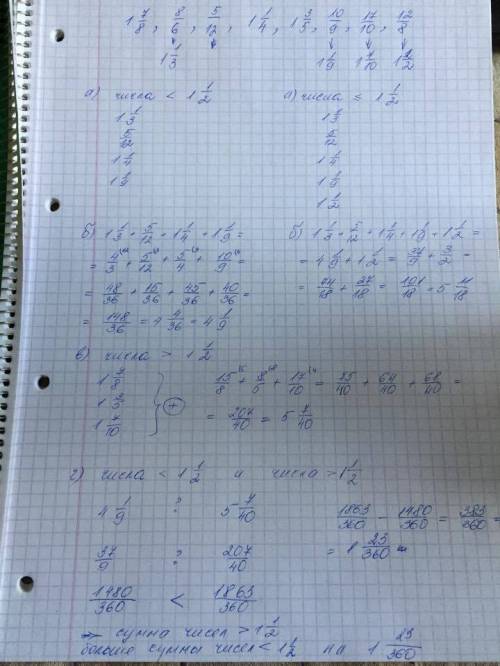 1 7/8, 8/6, 5/12, 1 1/4, 1 3/5, 10/9, 17/10, 12/8
1 1/3 1 1/9 1 7/10 1 1/2
а) числа < 1 1/2
1 1/3
5/12
1 1/4
1 1/9
а) числа ≤ 1 1/2
1 1/3
5/12
1 1/4
1 1/9
1 1/2
б) 1 1/3 + 5/12 + 1 1/4 + 1 1/9 =
= 4/3 + 5/12 + 5/4 + 10/9 =
= 48/36 + 15/36 + 45/36 + 40/36 =
= 148/36 = 4 4/36 = 4 1/9
б) 1 1/3 + 5/12 + 1 1/4 + 1 1/9 + 1 1/2 =
= 4 1/9 + 1 1/2 = 37/9 + 3/2 =
= 74/18 + 27/18 = 101/18 = 5 11/18
в) числа > 1 1/2
1 7/8
1 3/5
1 7/10
+
15/8 + 8/5 + 17/10 = 75/40 + 64/40 + 68/40 =
= 207/40 = 5 7/40
г) числа < 1 1/2 и числа > 1 1/2
4 1/9 ? 5 7/40
37/9 ? 207/40
1480/360 < 1863/360
1863/360 - 1480/360 = 383/360 =
= 1 23/360
=> сумма чисел > 1 1/2
больше суммы чисел < 1 1/2 на 1 23/360